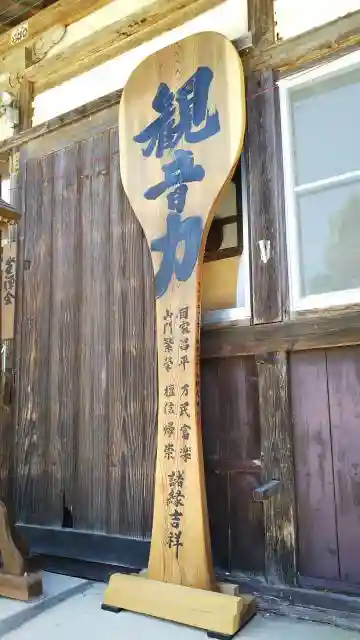 観音力
国家昌平 万民富楽
山門繁栄 檀信帰崇
諸縁吉祥